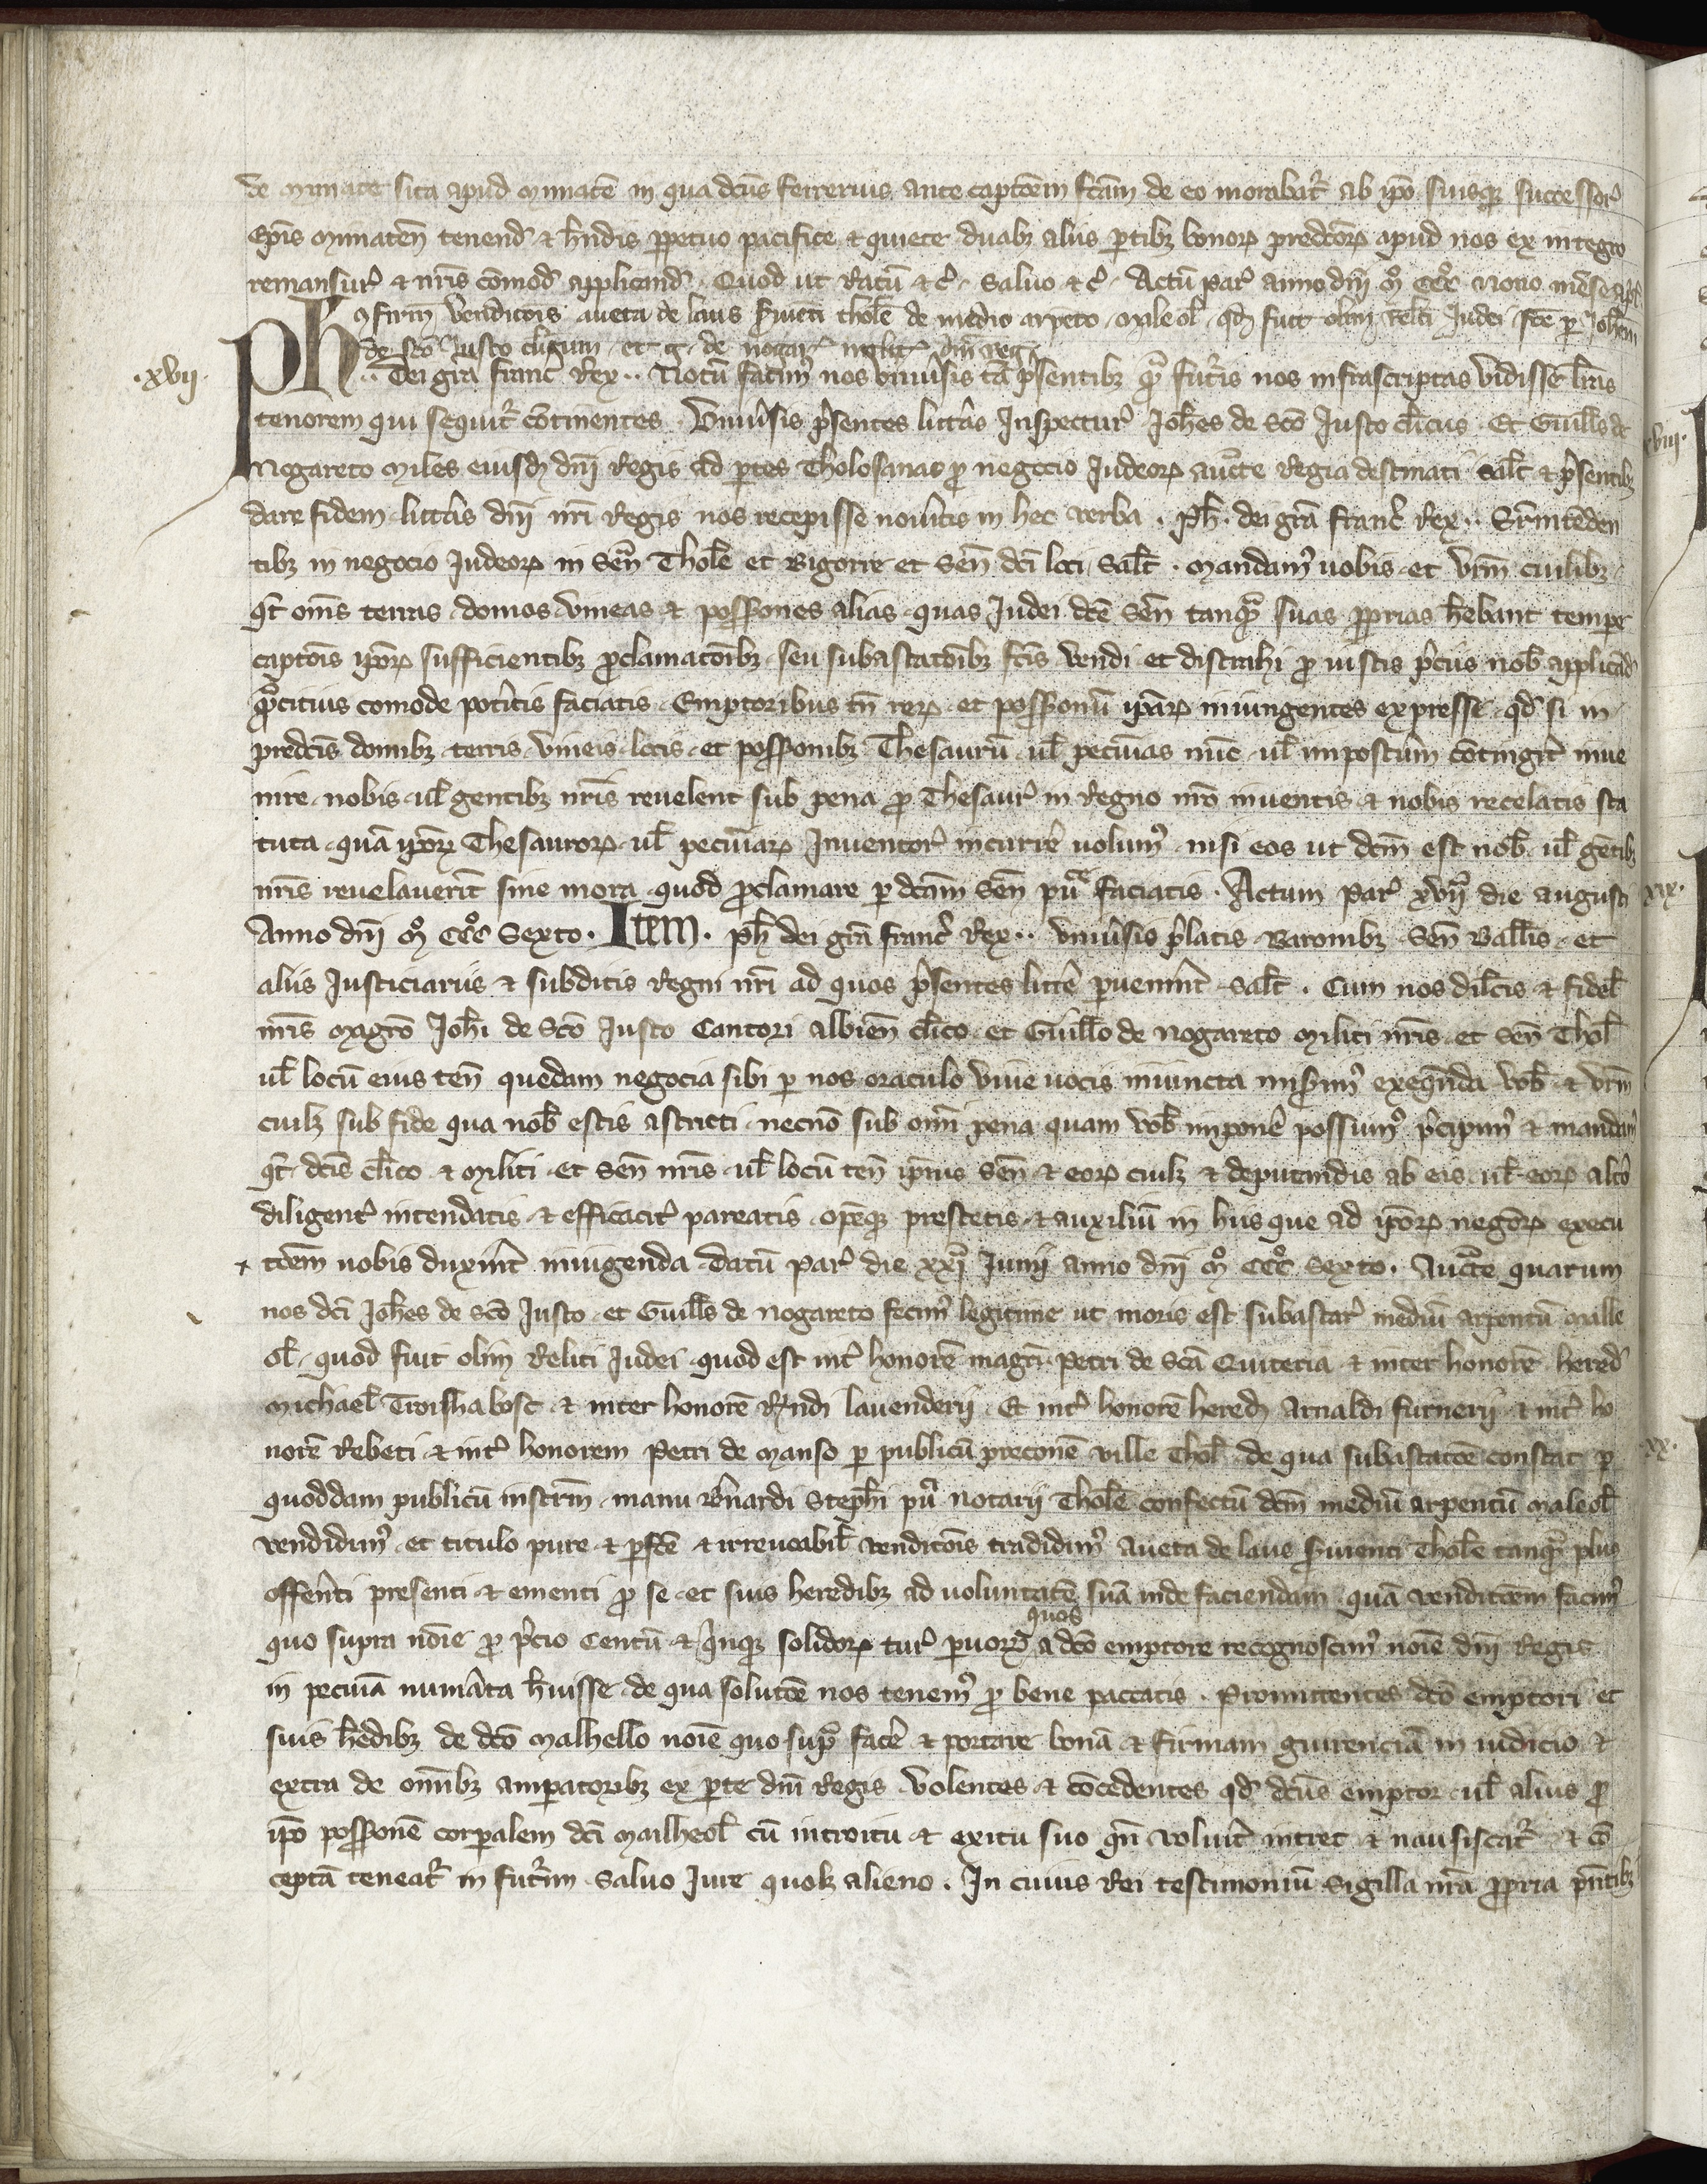 de Mimate sita apud Mimatē in qua dcūs ferrerius ante captōem fcām de eo morabat᷑ ab ip̄o suisqꝫ successor᷑
Ep̄is Mimateñ tenend᷑ ⁊ hn̄dis ꝑpetuo pacifice ⁊ quiete duabꝫ aliis ꝑtibꝫ bonoꝝ predcōꝝ apud nos ex integro
remansur᷑ ⁊ nr̄is cōmod᷑ applicand᷑. Quod ut Ratū ⁊c̄. Salvo ⁊c̄. Actū par᷑ anno dn̄i mͦ CCCͦ Nono mēse apł.
ꝯfirm᷑ venditōis aueta de laus ſviēti thole de medio arpēto maleoł qd̄ fuit olim Reliti Judei fc̄e ꝑ Joh̄em
de sc̄o Justo clicum et G. de nogar᷑ milit᷑ dn̄i reg᷑
.xvij.
Ph .. Dei gr̄a franc᷑ Rex .. Notū facim᷒ nos vniu᷑sis tā p̄sentibꝫ qͣ̄ futur᷑is nos infrascriptas vidisse lr̄as
tenorem qui sequit᷑ cōtinentes. Vniu᷑sis p̄sentes litt᷑as Inspectur᷑ Joh̄es de Sc̄o Justo cl̄icus. Et Guill̄s de
Nogareto Miles eiusdꝫ dn̄i Regis ad ꝑtes Tholosanas ꝓ negocio Judeoꝝ auct̄e Regia destinati salt̄ ⁊ p̄sentibꝫ
dare fidem. litt᷑as dn̄i nr̄i Regis nos recepisse nou᷑itis in hec verba. Ph̄. dei grā franc᷑ Rex .. Suꝑintēden
tibꝫ in negocio Judeoꝝ in Señ Thole et Bigorre et Señ dc̄i loci Salt̄. Mandam᷒ uobis et vr̄m cuilibꝫ
qt̄ om̄s terras domos vineas ⁊ possōnes alias quas Judei dc̄e Señ tanqͣ̄ suas ꝓprias hēbant tempe
captōis ip̄oꝝ sufficientibꝫ ꝓclamatōibꝫ seu subastatōibꝫ fc̄is vendi et distrahi ꝓ iustis p̄ciis nob̄ applicād᷑
qͣ̄citius comode pot᷑itis faciatis. Emptoribus tn̄ reꝝ et possōnū ip̄aꝝ iniungentes expresse qd̄ si in
predc̄is domibꝫ terris vineis locis et possōnibꝫ Thesaurū ul̄ pecunias nūc ul̄ impost᷑um cōtingat᷑ inue
nire nobis ul̄ gentibꝫ nr̄is reuelent sub pena ꝓ Thesaur᷑ in Regno nr̄o inuentis ⁊ nobis recelatis sta
tuta quā ip̄oꝝ Thesauroꝝ ul̄ pecuniaꝝ Inuentor᷑ incurr᷑e uolum᷒ nisi eos ut dcm̄ est nob̄ ul̄ gētibꝫ
nr̄is reuelauerīt sine mora quod ꝓclamare ꝑ dcām Señ puͨe faciatis. Actum par᷑ xvijͣ die augusti
Anno dn̄i mͦ CCCͦ Sexto. Item. Ph̄ dei grā franc᷑ Rex .. vniu᷑sis p̄latis Baronibꝫ Señ Ball̄is et
aliis Justiciariis ⁊ subditis Regni nr̄i ad quos p̄sentes litt᷑e ꝑuenīnt salt̄. Cum nos dilc̄is ⁊ fidel̄
nr̄is Magr̄o Joh̄i de Sc̄o Justo Cantori albieñ cl̄ico et Guill̄o de Nogareto Militi nr̄is et Señ Thol̄
ul̄ locū eius teñ quedam negocia sibi ꝑ nos oraculo viue uocis iniuncta misim᷒ exequēnda vob̄ ⁊ vr̄m
cuilꝫ sub fide qua nob̄ estis astricti necnō sub om̄i pena quam vob̄ impon᷑e possum᷒ p̄cipim᷒ ⁊ mandam᷒
qt̄ dc̄is cl̄ico ⁊ Militi et Señ nr̄is ul̄ locū teñ ip̄ius Señ ⁊ eoꝝ cuilꝫ ⁊ deputandis ab eis ul̄ eoꝝ alt᷑o
diligent᷑ intendatis ⁊ efficacit᷑ pareatis opemqꝫ prestetis ⁊ auxiliū in hiis que ad ip̄oꝝ negōꝝ execu
tōem uobis duxīnt iniūgenda. Datū par᷑ die xxjͣ Junij anno dn̄i mͦ CCCͦ Sexto. Auct̄e quarum
nos dc̄i Joh̄es de Sc̄o Justo et Guill̄s de Nogareto fecim᷒ legitime ut moris est subastar᷑ mediū arpentū malle
ol̄ quod fuit olim Reliti Judei quod est int᷑ honorē magr̄i Petri de Sc̄a Quiteria ⁊ inter honorē hered᷑
Michael̄ Troishabosc ⁊ inter honorē R̄ndi lauenderij. Et int᷑ honorē heredꝫ Arnaldi furnerij ⁊ int᷑ ho
norē Rebeti ⁊ int᷑ honorem Petri de Manso ꝑ publicū preconē ville Thol̄ de qua subastatōe constat ꝑ
quoddam publicū instrm̄ manu Bn̄ardi Steph̄i puͨ notarij Thole confectū dcm̄ mediū arpentū maleol̄
vendidim᷒ et titulo pure ⁊ ꝑfc̄e ⁊ irreuocabil̄ venditōis tradidim᷒ Aueta de laus ſuienti Thole tanqͣ̄ plus
offer᷑nti presenti ⁊ ementi ꝓ se et suis heredibꝫ ad uoluntatē suā inde faciendam quā venditōem facim᷒
quo supra nōie ꝓ p̄cio Centū ⁊ q̄nqꝫ solidoꝝ tur᷑ ꝑuoꝝ quos a dc̄o emptore recognoscim᷒ noīe dn̄i Regis
in pecunia num᷑ata hūisse de qua solutōe nos tenem᷒ ꝓ bene paccatis. Promittentes dc̄o emptori et
suis hēdibꝫ de dc̄o Malhello noīe quo supͣ fac᷑e ⁊ portare bonā ⁊ firmam guirenciā in iudicio ⁊
extra de om̄ibꝫ amꝑatoribꝫ ex ꝑte dn̄i Regis. Volentes ⁊ cōcedentes qd̄ dcūs emptor ul̄ alius ꝓ
ip̄o possōnē corꝑalem dc̄i Mailheol̄ cū introitu ⁊ exitu suo qn̄ volu᷑it intret ⁊ nansiscat᷑ ⁊ cō
ceptā teneat᷑ in futur᷑m. Saluo Jure quolꝫ alieno. In cuius Rei testimoniū Sigilla nr̄a ꝓpria p̄ntibꝫ